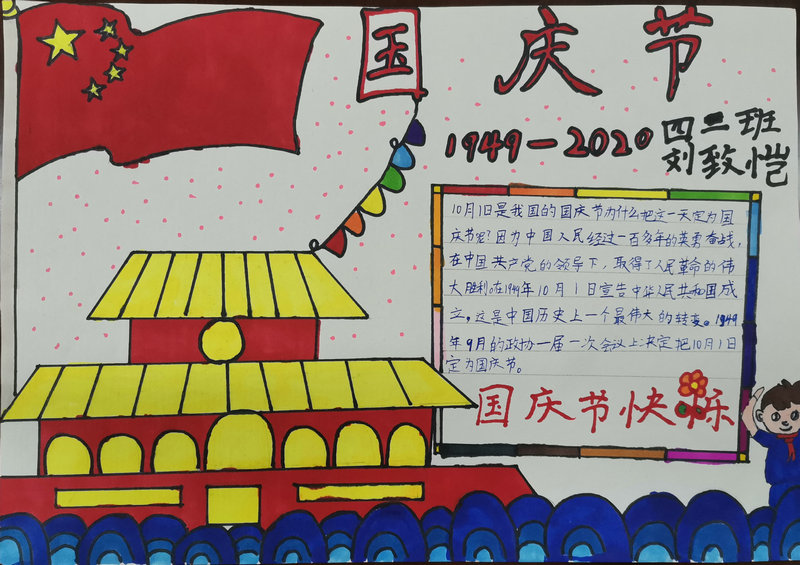 国庆节
1949-2020
四二班
刘致恺
10月1日是我国的国庆节为什么把这一天定为国
庆节呢?因为中国人民经过一百多年的英勇奋战,
在中国共产党的领导下,取得了人民革命的伟
大胜利。在1949年10月1日宣告中华人民共和国成
立。这是中国历史上一个最伟大的转变。1949
年9月的政协一届一次会议上决定把10月1日
定为国庆节。
国庆节快乐